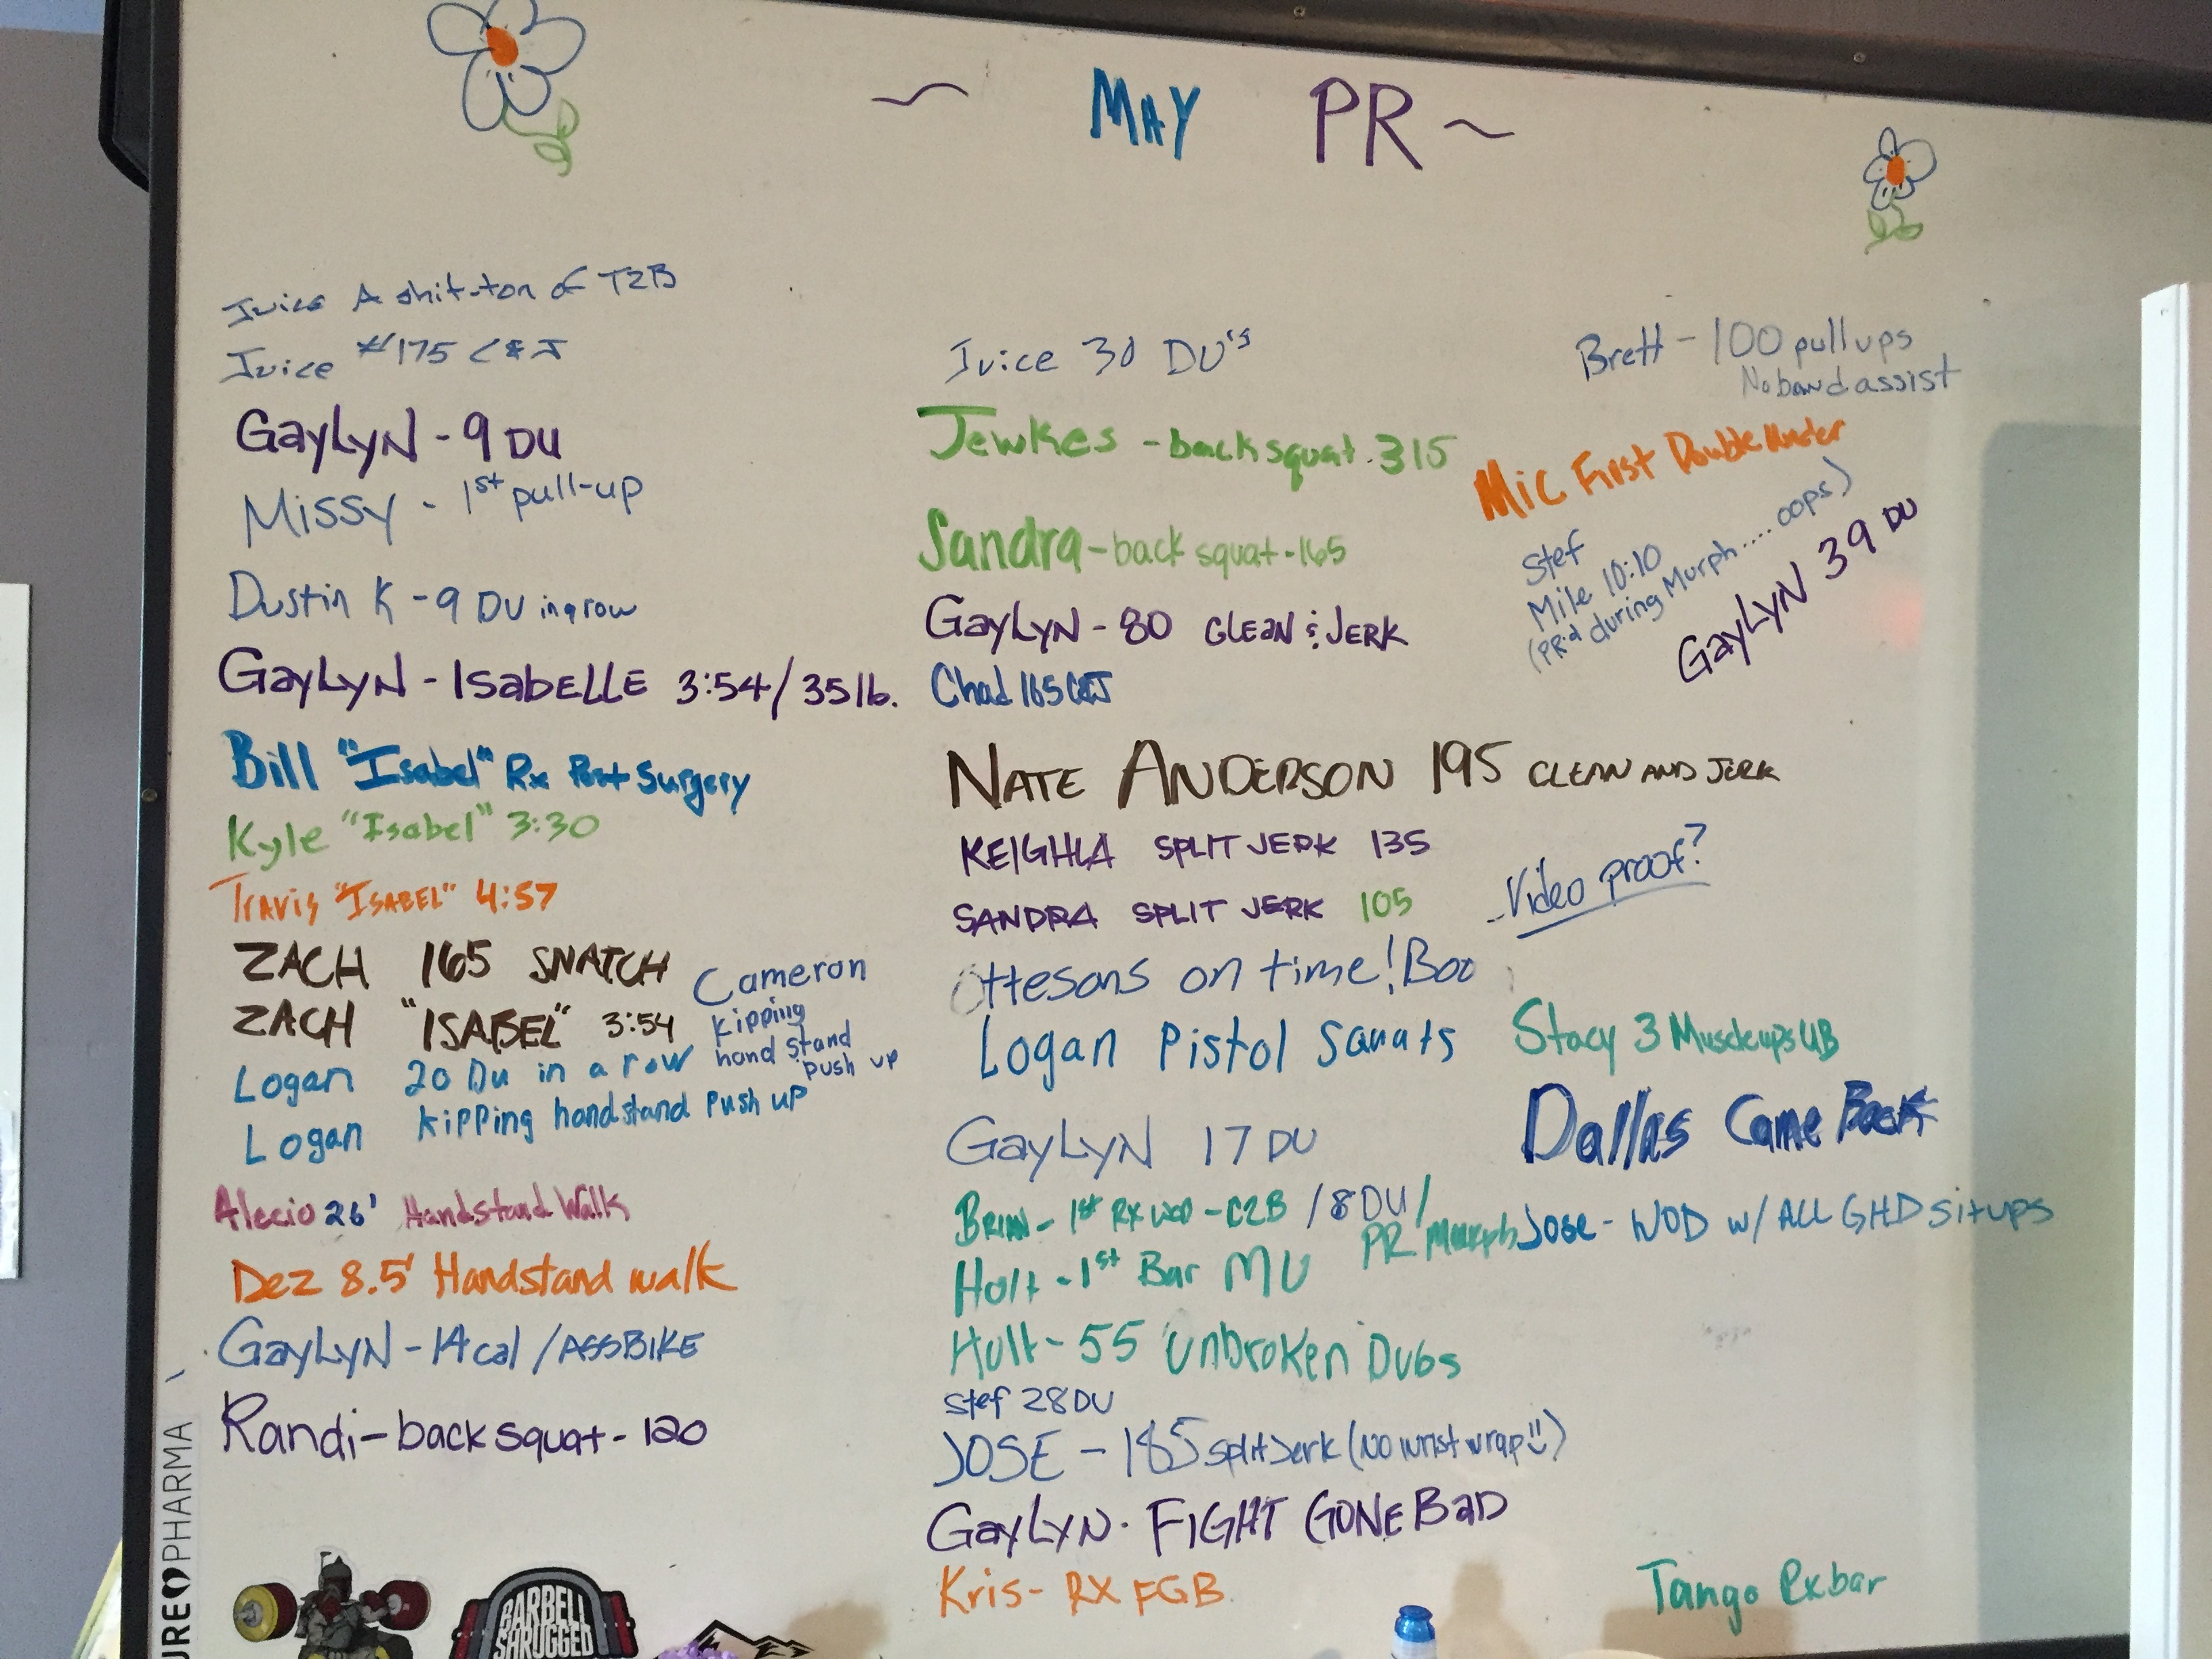 ~ MAY PR ~
Juice A shit-ton of T2B
Juice #175 C&J
GayLyN - 9 DU
Missy - 1st pull-up
Dustin K - 9 DU in a row
GayLyN - IsabELLE 3:54/35lb.
Bill "Isabel" Rx Post Surgery
Kyle "Isabel" 3:30
Travis "ISABEL" 4:57
ZACH 165 SNATCH
ZACH "ISABEL" 3:54
Cameron
Kipping
hand stand
push up
Logan 20 Du in a row
Logan kipping handstand push up
Alecio 26' Handstand Walk
Dez 8.5' Handstand walk
GayLyN - 14 cal / ASSBIKE
Randi - back squat - 120
Juice 30 DU's
Jewkes - back squat 315
Sandra - back squat - 165
GayLyN - 80 CLEAN & JERK
Chad 165 C&J
NATE ANDERSON 195 CLEAN AND JERK
KEIGHLA SPLIT JERK 135
SANDRA SPLIT JERK 105
Ottesons on time! Boo
- Video proof?
Logan Pistol Squats
GayLyN 17 DU
BRIAN - 1st RX WOD - C2B / 8 DU /
PR Murph
Holt - 1st Bar MU
Holt - 55 Unbroken Dubs
Stef 28 DU
JOSE - 185 split Jerk (No wrist wrap!!)
GayLyN - FIGHT GONE BAD
Kris - RX FGB
Brett - 100 pull ups
No band assist
Mic First Double Under
Stef
Mile 10:10
(PR'd during Murph.....oops)
GayLyN 39 DU
Stacy 3 Muscleups UB
Dallas Came Back
Jose - WOD w/ ALL GHD situps
Tango Rxbar
URE PHARMA
BARBELL
SHRUGGED